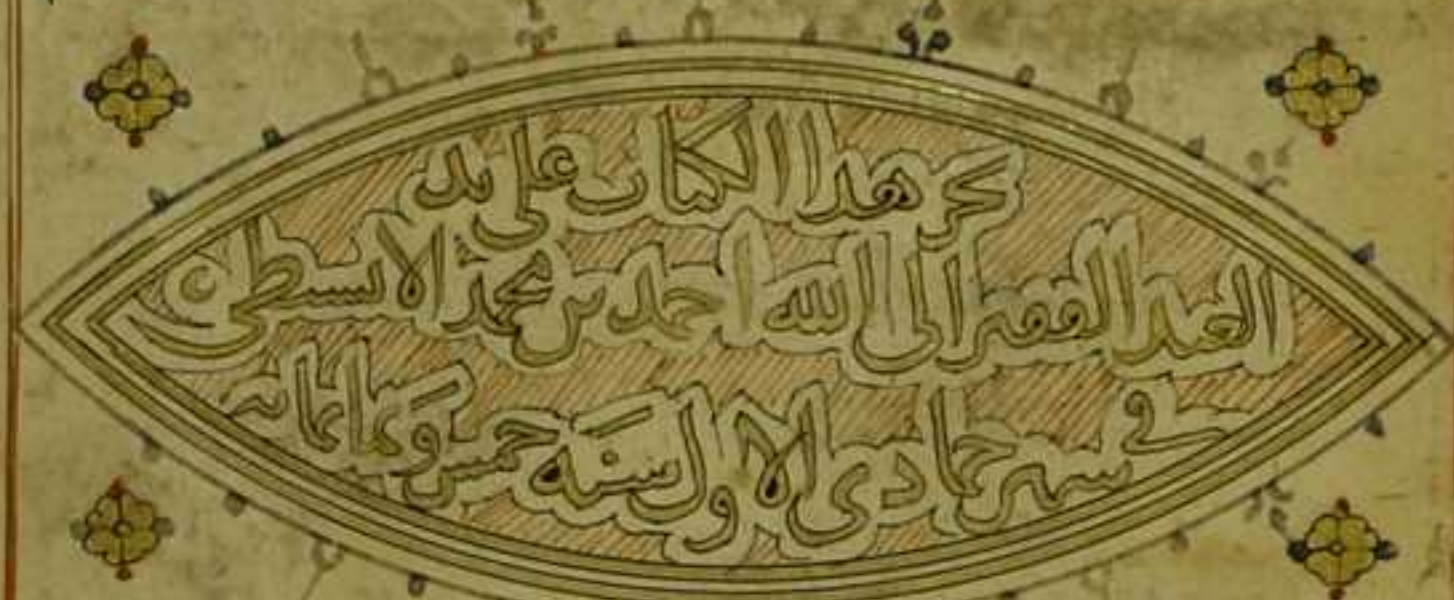 نجز هذا الكتاب على يد
العبد الفقير الى الله احمد بن محمد
في شهر جمادى الاول سنة خمس وثمانمائه